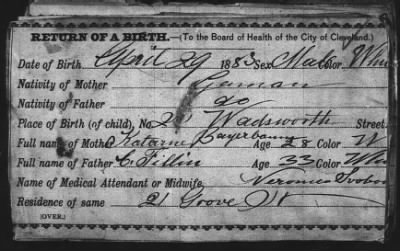 RETURN OF A BIRTH.—(To the Board of Health of the City of Cleveland.)
Date of Birth, April 29 1883 Sex Male Color Whi
Nativity of Mother German
Nativity of Father do
Place of Birth (of child), No. 2 Wadsworth Street.
Full name of Mother Age 28 Color W
Full name of Father C. Tillin Age 33 Color Whi
Name of Medical Attendant or Midwife, Veronica Svobo
Residence of same 21 Groove St
(OVER.)